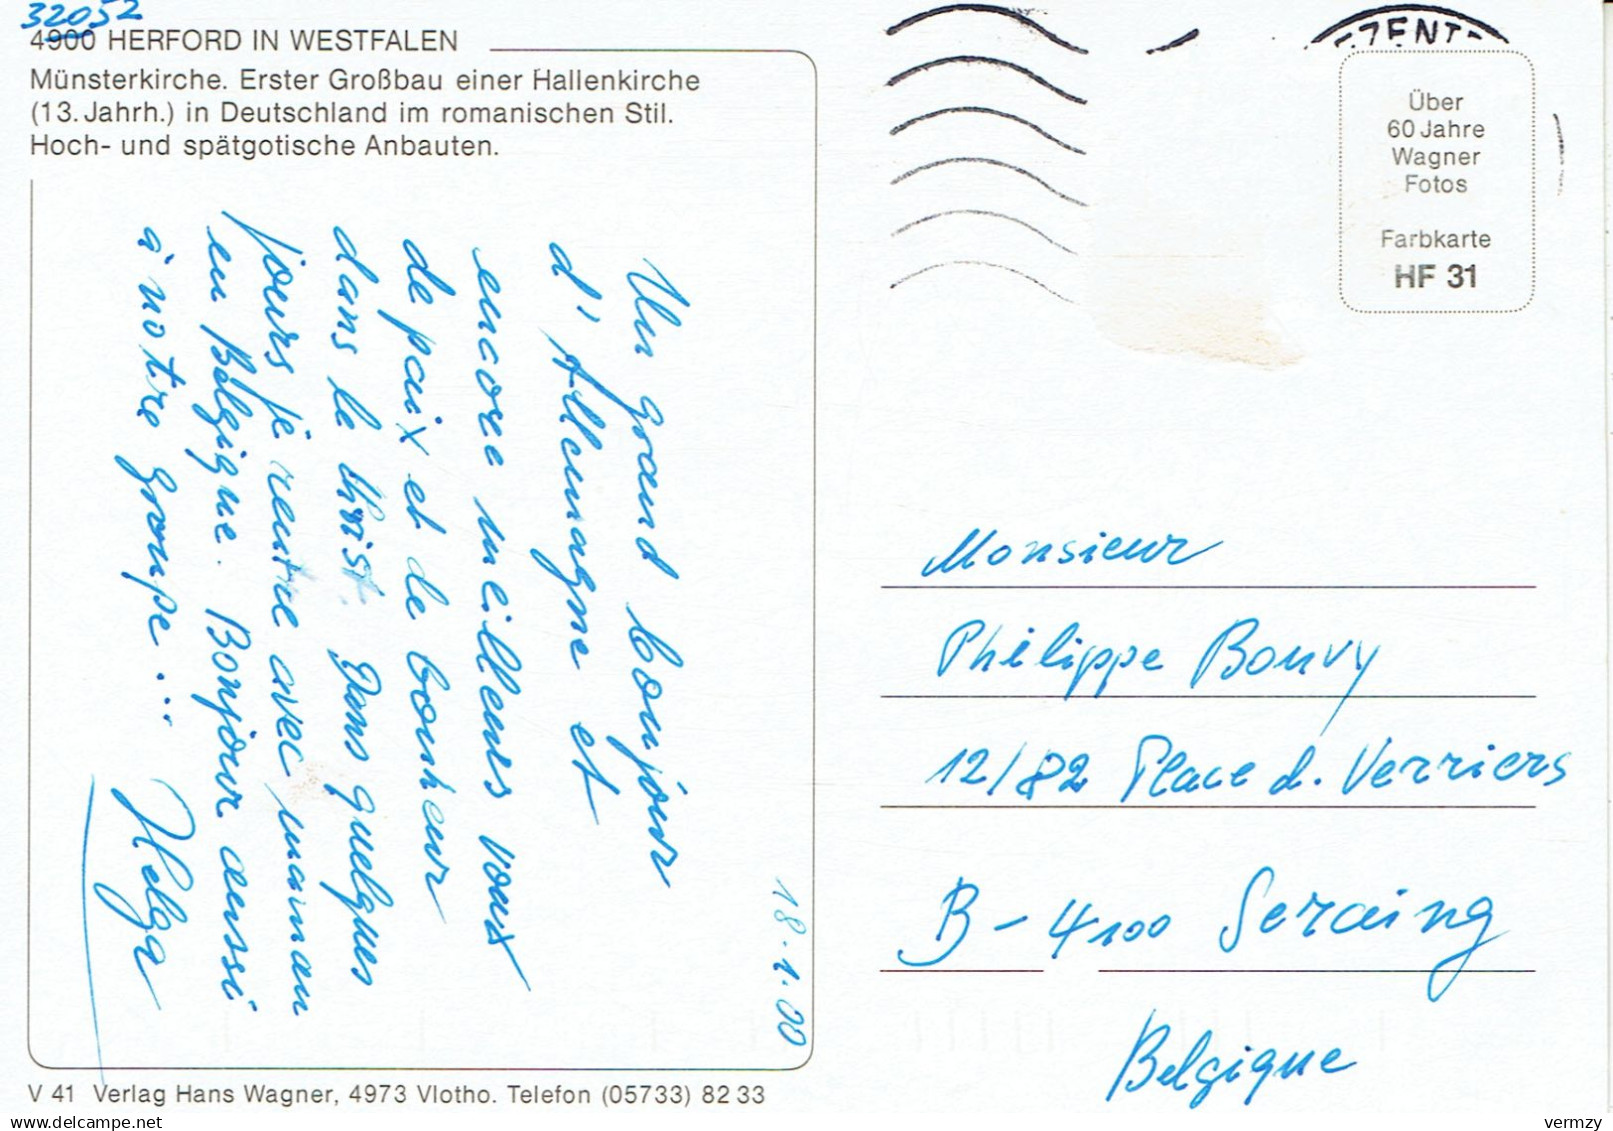 32052
4900 HERFORD IN WESTFALEN
Münsterkirche. Erster Großbau einer Hallenkirche
(13. Jahrh.) in Deutschland im romanischen Stil.
Hoch- und spätgotische Anbauten.
18.1.00
Un grand bonjour
d'Allemagne et
encore meilleurs vœux
de paix et de bonheur
dans le Christ. Dans quelques
jours je rentre avec maman
en Belgique. Bonjour aussi
à notre groupe...
Helga
V 41 Verlag Hans Wagner, 4973 Vlotho. Telefon (05733) 82 33
ZENT
Über
60 Jahre
Wagner
Fotos
Farbkarte
HF 31
Monsieur
Philippe Bouvy
12/82 Place d. Verriers
B-4100 Seraing
Belgique
vermzy